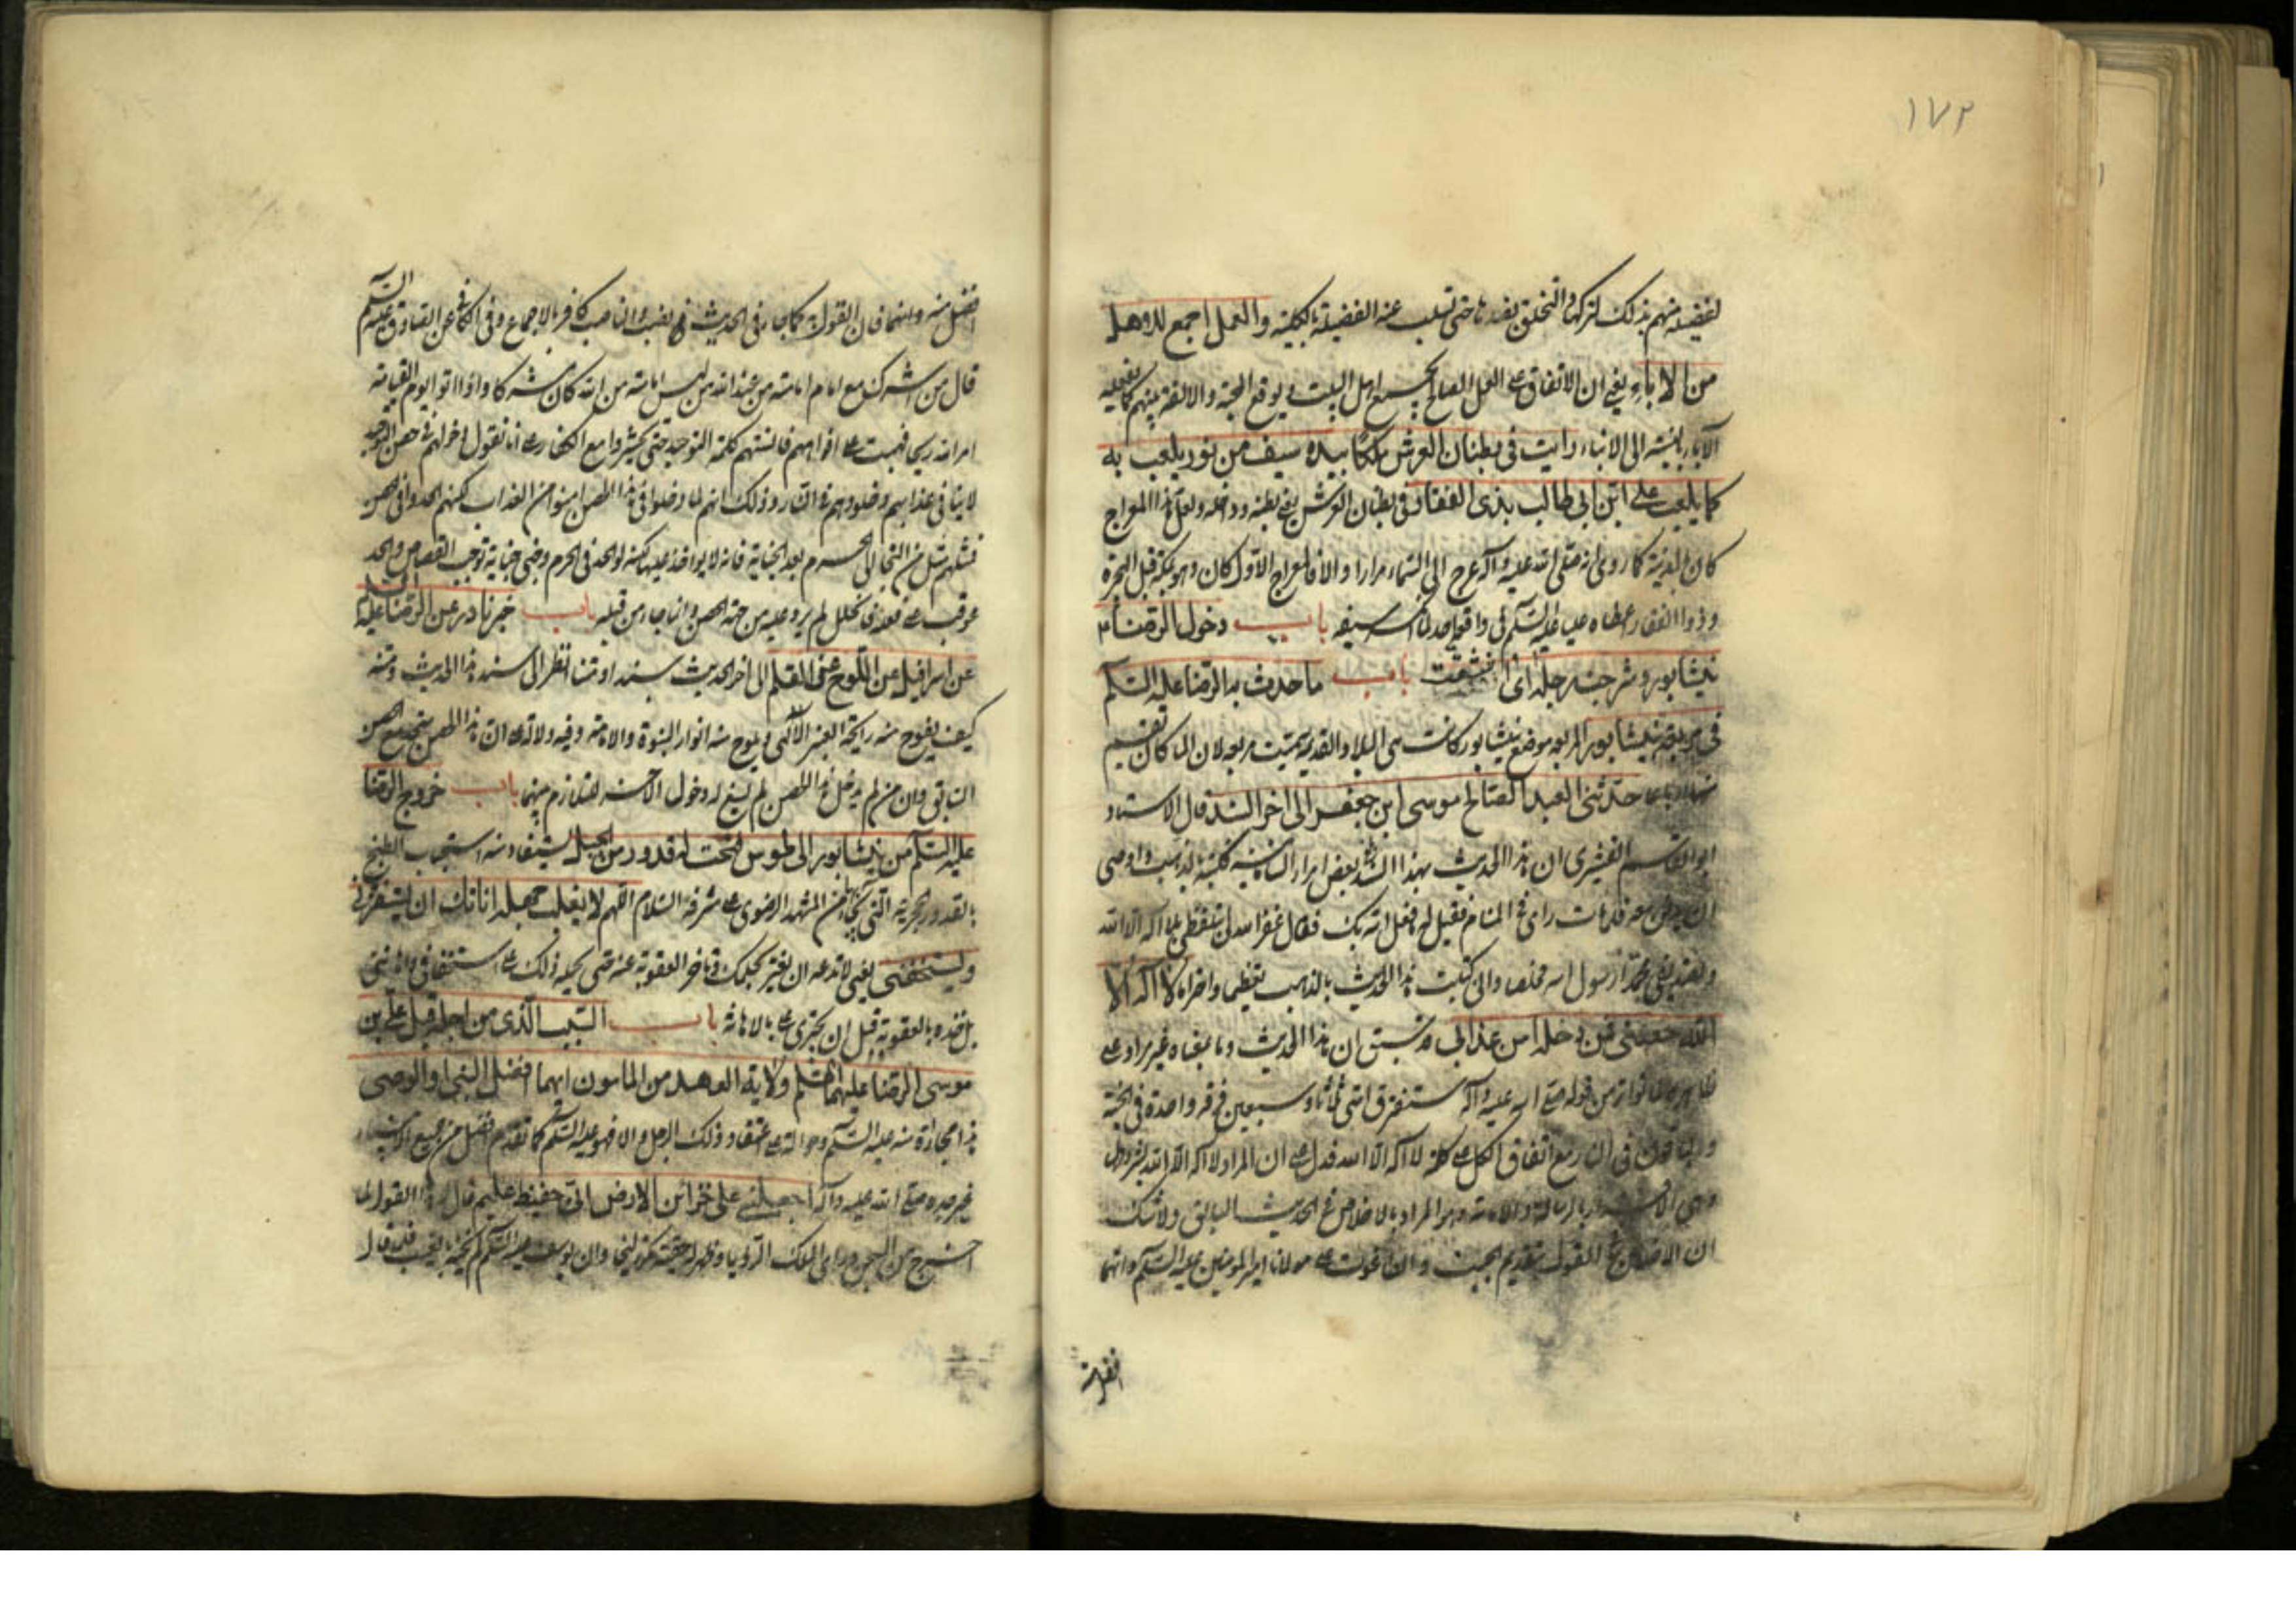 ١٧٢
لفضيلة منهم بذلك لتركها والتخلق بضدها حتى تسلب عنه الفضيلة بالكلية والعمل اجمع له وهلم
من الاباء يعنى ان الاتفاق على العمل الصالح اهل البيت يوقع المحبة والالفة بينهم
الاباء بالنسبة الى الابناء رايت فى بطنان العرش ملكا بيده سيف من نور يلعب به
كما يلعب على ابن ابى طالب بذى الفقار وفى بطنان العرش يعنى بطنه وداخله ولعل هذا المعراج
كان المدينة كما روى انه صلى الله عليه وآله عرج الى السماء مرارا والا فالمعراج الاول كان وهو بمكة قبل الهجرة
وذو الفقار اعطاه عليا عليه السلم فى واقعة احد لما انكسر سيفه باب دخول الرضا ء م
نيشابور و رجله اى انشقت باب ما حدث به الرضا عليه السلم
فى مربعة نيشابور المربعه موضع نيشابور كانت هى البلاد القديمة سميت مربعه لان الماء كان تقسيم
حدثنى العبد الصالح موسى ابن جعفر الى اخر السند قال الاستاد
ابو القاسم القشيرى ان هذا الحديث بهذا السند بعض امراء السامانية كتبه بالذهب واوصى
ان يدفن معه فلما مات راى فى المنام فقيل له ما فعل الله بك فقال غفر الله لى بتلفظى بلا اله الا الله
وتصديقى محمدا رسول الله مخلصا وانى كتبت هذا الحديث بالذهب تعظيما واحتراما لا اله الا
الله حصنى فمن دخله امن عذابى قد سبق ان هذا الحديث وما بمعناه غير مراد على
ظاهره لما تواتر من قوله صلى الله عليه وآله ستفترق امتى ثلاثا وسبعين فرقه واحدة فى الجنة
والباقون فى النار مع اتفاق الكل على كلمة لا اله الا الله فدل على ان المراد لا اله الا الله بشروطها
وهى الاقرار بالرسالة والامامة وهو المراد بالاخلاص فى الحديث السابق ولا شك
ان الاخلاص القول بتقديم الجبت والطاغوت على مولانا امير المؤمنين عليه السلم وانهما
افضل منه
افضل منه وانهما فان القول به كما جاء فى الحديث نصب والناصب كافر بالاجماع وفى الكافى عن الصادق عليه السلم
قال من اشرك مع امام امامته من عند الله من ليست امامته من الله كان مشركا واذا اتوا يوم القيامة
امر الله ريحا فهبت على افواههم فانستهم كلمة التوحيد حتى يحشروا مع الكفار على انا نقول دخولهم فى حصن التوحيد
لا ينافى عذابهم وخلودهم فى النار وذلك انهم لما دخلوا فى هذا الحصن امنوا من العذاب لكنهم الحدوا فى الحصن
فمثلهم مثل من التجا الى الحرم بعد الجناية فانه لا يواخذ عليها لكنه لو الحد فى الحرم وجنى جناية توجب القصاص والحد
عوقب على فعله فالخلل لم يرد عليه من جهة الحصن وانما جاء من قبله باب خبر نادر عن الرضا عليه السلم
عن اسرافيل عن اللوح عن القلم الى اخر الحديث سندا ومتنا انظر الى سند هذا الحديث ومتنه
كيف يفوح منه رايحة العنبر الالهى ويلوح منه انوار النبوة والامامة وفيه دلالة على ان هذا الحصن متحد مع الحصن
السابق وان من لم يدخل هذا الحصن لم ينبغ له دخول الاخر للتلازم بينهما باب خروج الرضا
عليه السلم من نيشابور الى طوس لتنحت له قدور من الجبل يستفاد منه استحباب الطبخ
بالقدور الحجرية التى من المشهد الرضوى على مشرفه السلام اللهم لا يغلب جهله اناتك ان يستفزنى
ويستخفنى يعنى لا تدعه ان يغتر بحلمك وتاخر العقوبة عنه حتى يحمله ذلك على استخفافى واهانتى
بل خذه بالعقوبة قبل ان يجترى على بالاهانة باب السبب الذى من اجله قبل على بن
موسى الرضا عليهما السلم ولاية العهد من المامون ايهما افضل النبى او الوصى
هذا مجاراة منه عليه السلم وحوالة على اعتقاد ذلك الرجل والا فهو عليه السلم كما تقدم افضل من جميع الانبياء
غير جده صلى الله عليه وآله اجعلنى على خزائن الارض انى حفيظ عليم قال هذا القول لما
اخرج من السجن وراى الملك الرؤيا وظهر له حقيقة مكر زليخا وان يوسف عليه السلم لم يخنه بالغيب فلما قال